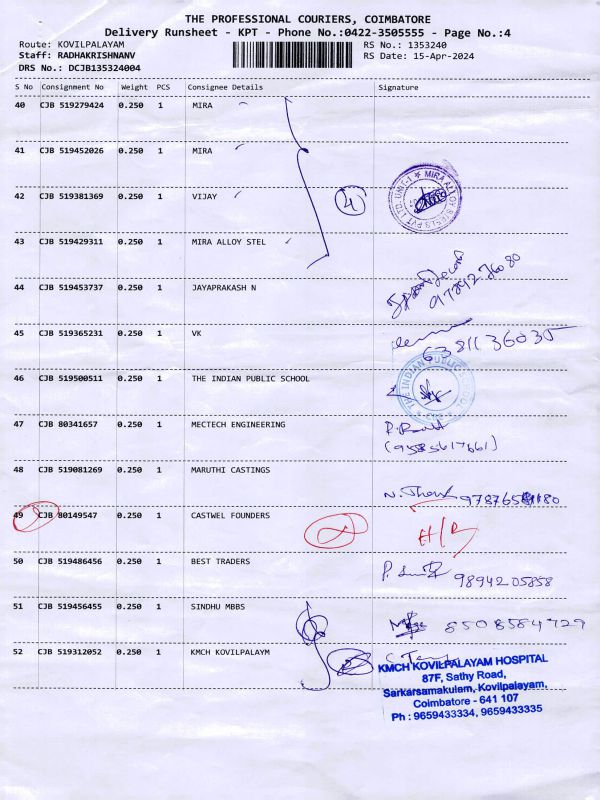 THE PROFESSIONAL COURIERS, COIMBATORE
Delivery Runsheet - KPT - Phone No.:0422-3505555 - Page No.:4
Route: KOVILPALAYAM
Staff: RADHAKRISHNANV
DRS No.: DCJB135324004
RS No.: 1353240
RS Date: 15-Apr-2024
S No Consignment No Weight PCS Consignee Details Signature
40 CJB 519279424 0.250 1 MIRA
41 CJB 519452026 0.250 1 MIRA
42 CJB 519381369 0.250 1 VIJAY
4
MIRA ALLOY STEELS PVT LTD. UNIT-1
43 CJB 519429311 0.250 1 MIRA ALLOY STEL
44 CJB 519453737 0.250 1 JAYAPRAKASH N
45 CJB 519365231 0.250 1 VK
6381136035
46 CJB 519500511 0.250 1 THE INDIAN PUBLIC SCHOOL
THE INDIAN PUBLIC SCHOOL
47 CJB 80341657 0.250 1 MECTECH ENGINEERING
(9585617661)
48 CJB 519081269 0.250 1 MARUTHI CASTINGS
49 CJB 80149547 0.250 1 CASTWEL FOUNDERS
50 CJB 519486456 0.250 1 BEST TRADERS
9894205858
51 CJB 519456455 0.250 1 SINDHU MBBS
8508584729
52 CJB 519312052 0.250 1 KMCH KOVILPALAYM
2
KMCH KOVILPALAYAM HOSPITAL
87F, Sathy Road,
Sarkarsamakulam, Kovilpalayam,
Coimbatore - 641 107
Ph : 9659433334, 9659433335